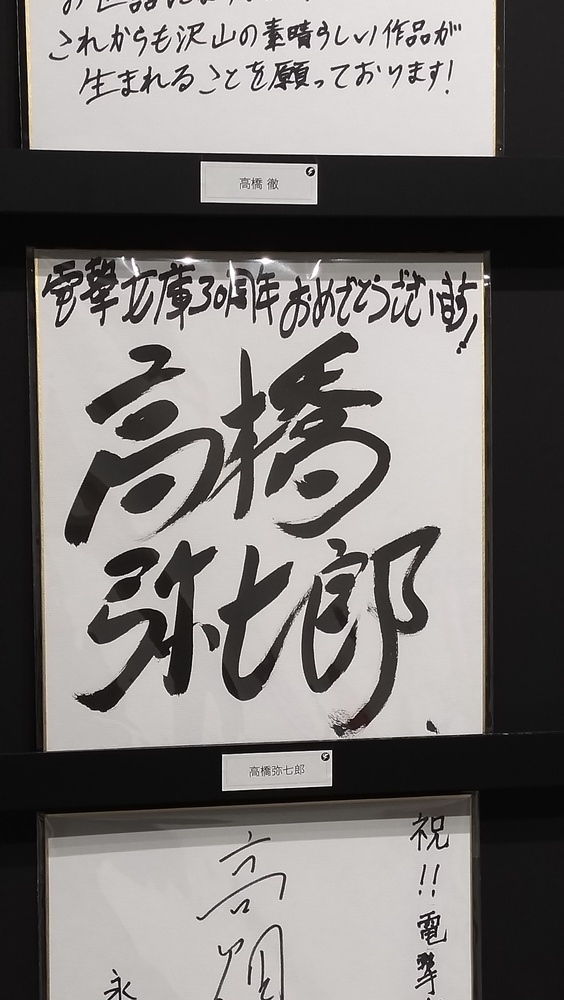 これからも沢山の素晴らしい作品が
生まれることを願っております!
高橋 徹
電撃文庫30周年おめでとうございます!
高橋
弥七郎
高橋弥七郎
祝!!電撃
高
永